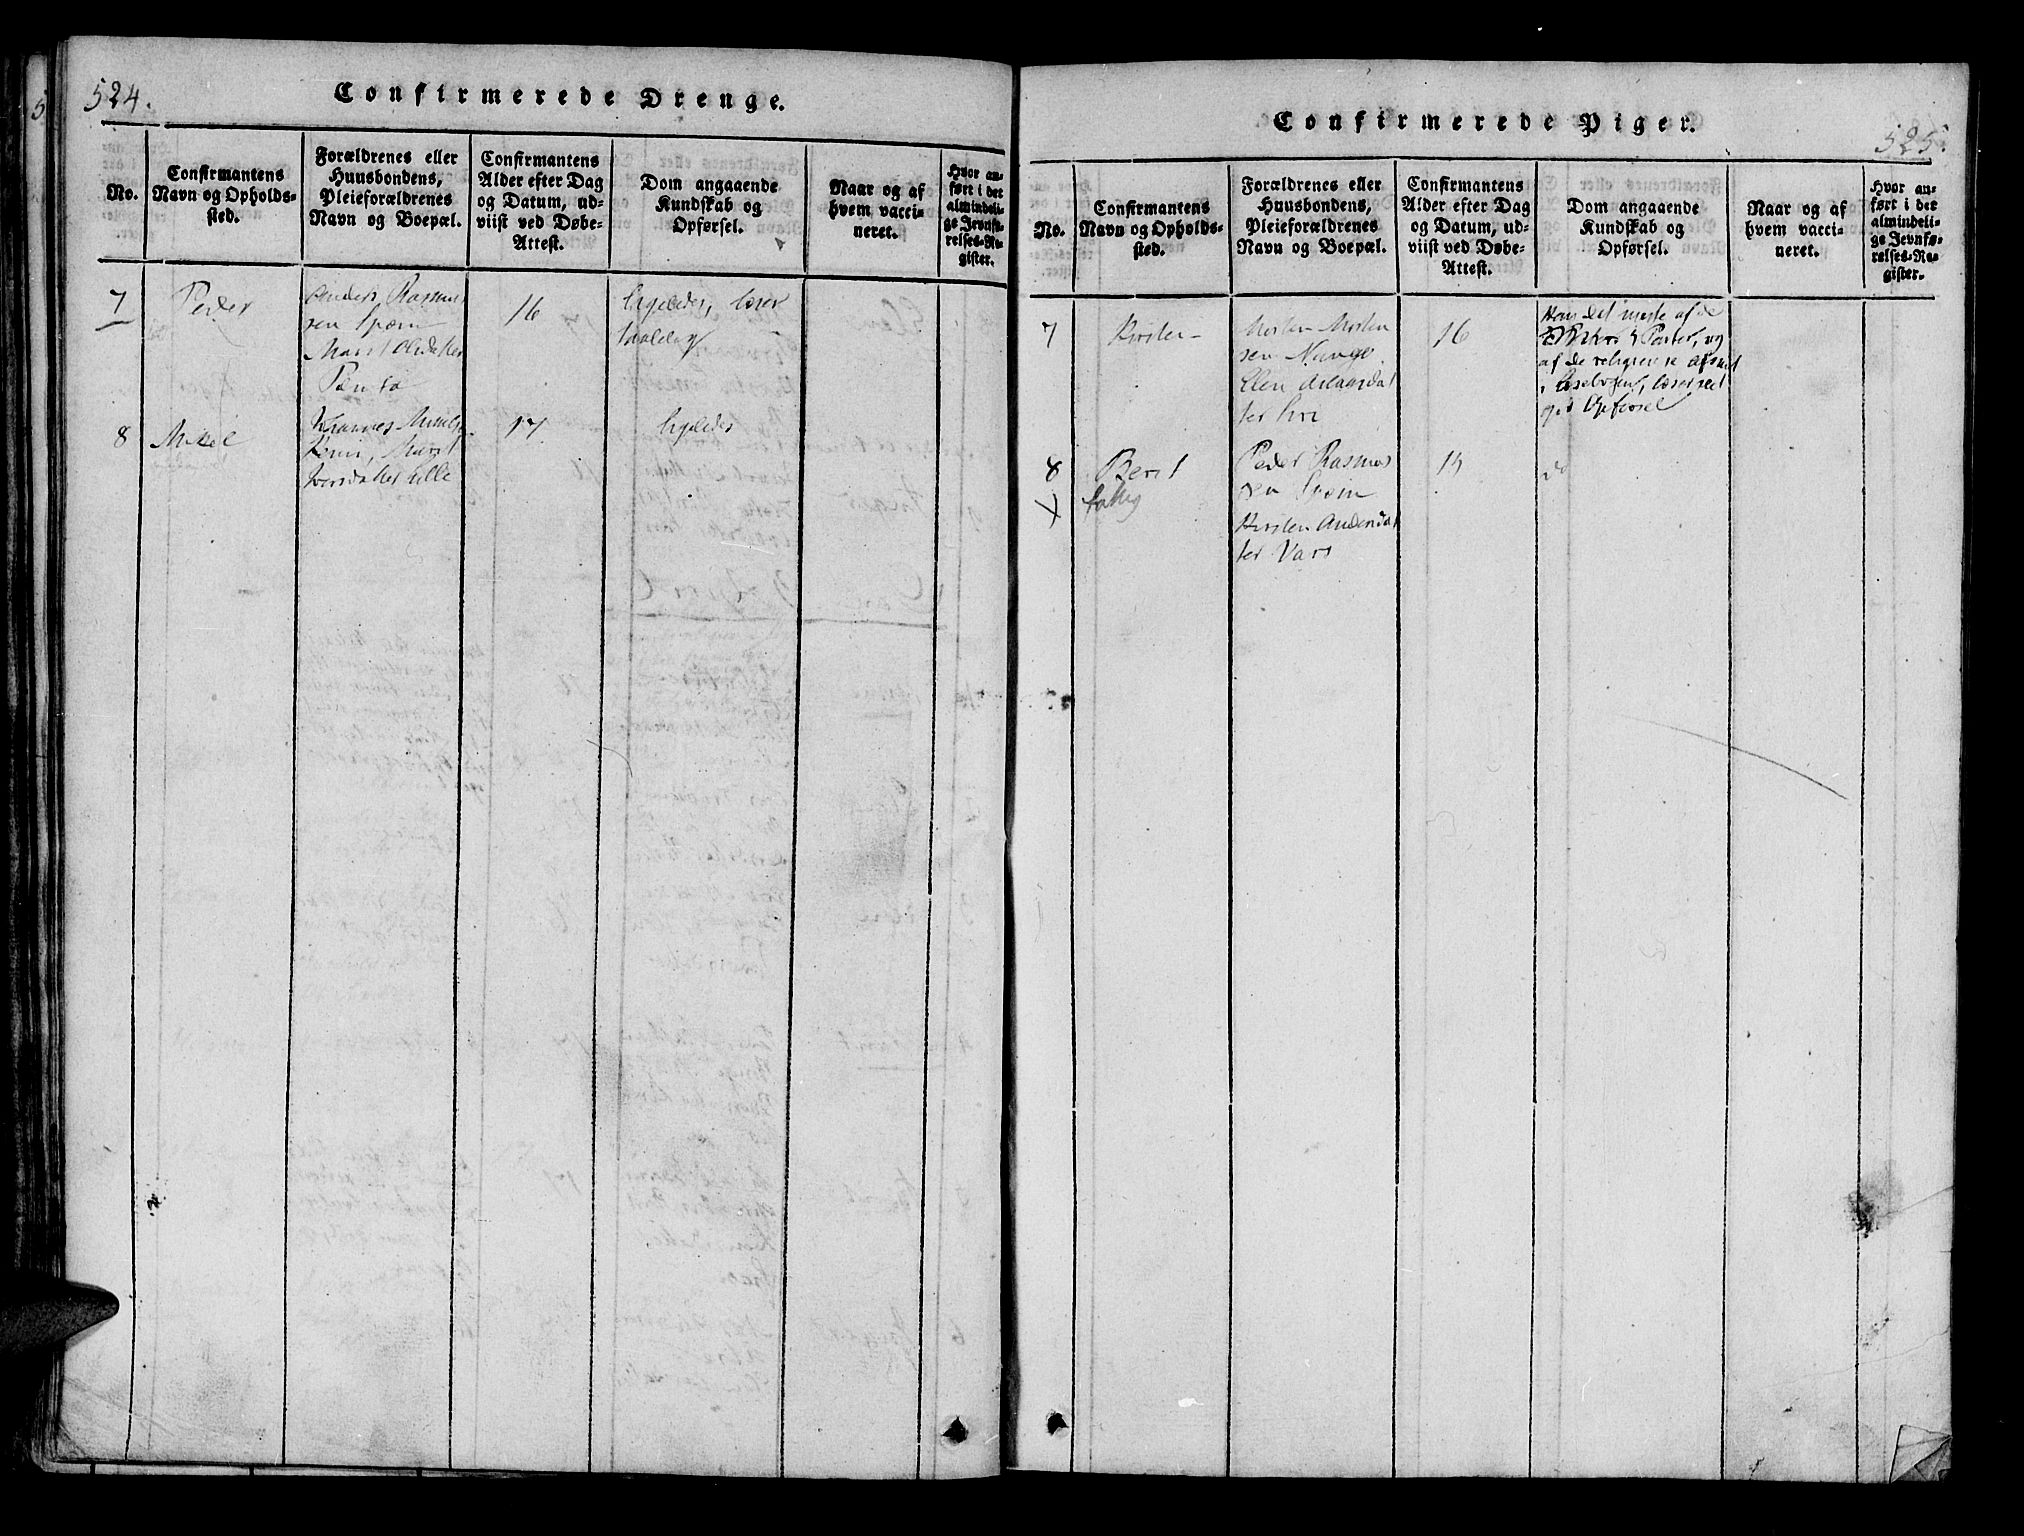 524.
Confirmerede Drenge.
No.
Confirmantens
Navn og Opholds-
sted.
Forældrenes eller
Huusbondens,
Pleieforældrenes
Navn og Boepæl.
Confirmantens
Alder efter Dag
og Datum, ud-
viist ved Døbe-
Attest.
Dom angaaende
Kundskab og
Opførsel.
Naar og af
hvem vacci-
neret.
Hvor an-
ført i det
almindeli-
ge Jevnfø-
relses-Re-
gister.
7
Peder
Anders Rasmus
sen
Marit Olsdatter
16
ligeledes, læser
8
Mikel
Marit
Iversdatter Lille
17
ligeledes
Confirmerede Piger.
525.
No.
Confirmantens
Navn og Opholds-
sted.
Forældrenes eller
Huusbondens,
Pleieforældrenes
Navn og Boepæl.
Confirmantens
Alder efter Dag
og Datum, ud-
viist ved Døbe-
Attest.
Dom angaaende
Kundskab og
Opførsel.
Naar og af
hvem vacci-
neret.
Hvor an-
ført i det
almindeli-
ge Jevnfø-
relses-Re-
gister.
7
Kirsten
Morten Morten
sen
Elen Aslaksdat
ter
16
det meste af de
Parter, og
af de religieuse
i Læsebogen, læser
god Opførsel
8
Berit
fattig
Peder Rasmus
sen
Kirsten Andersdat
ter Vars
15
do